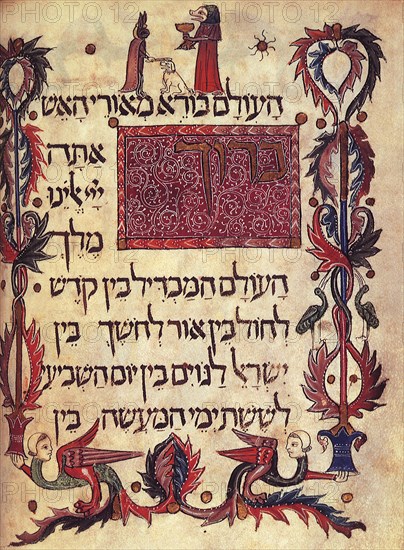 העולם בורא מאורי האש
ברוך אתה
יי אלהינו
מלך
העולם המבדיל בין קדש
לחול בין אור לחשך בין
ישראל לגוים בין יום השביעי
לששת ימי המעשה בין